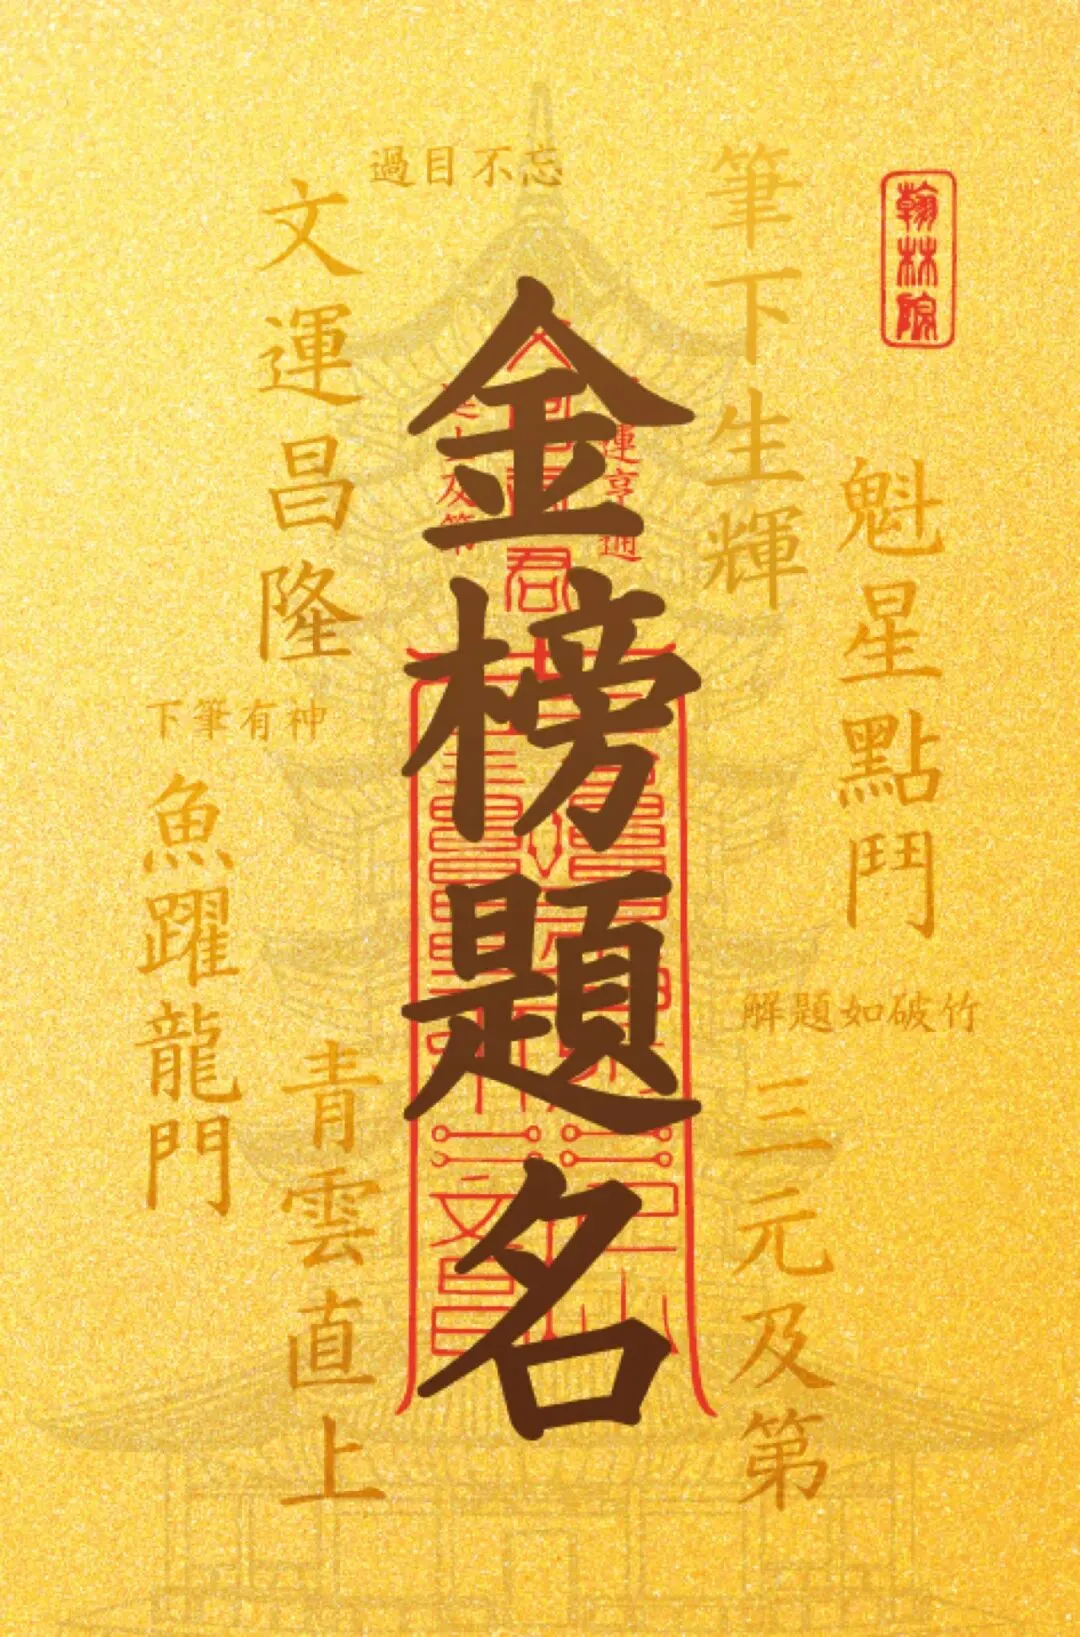 金榜題名
過目不忘
文運昌隆
筆下生輝
翰林院
魁星點鬥
下筆有神
魚躍龍門
解題如破竹
青雲直上
三元及第
運亨通
及第
君
文昌